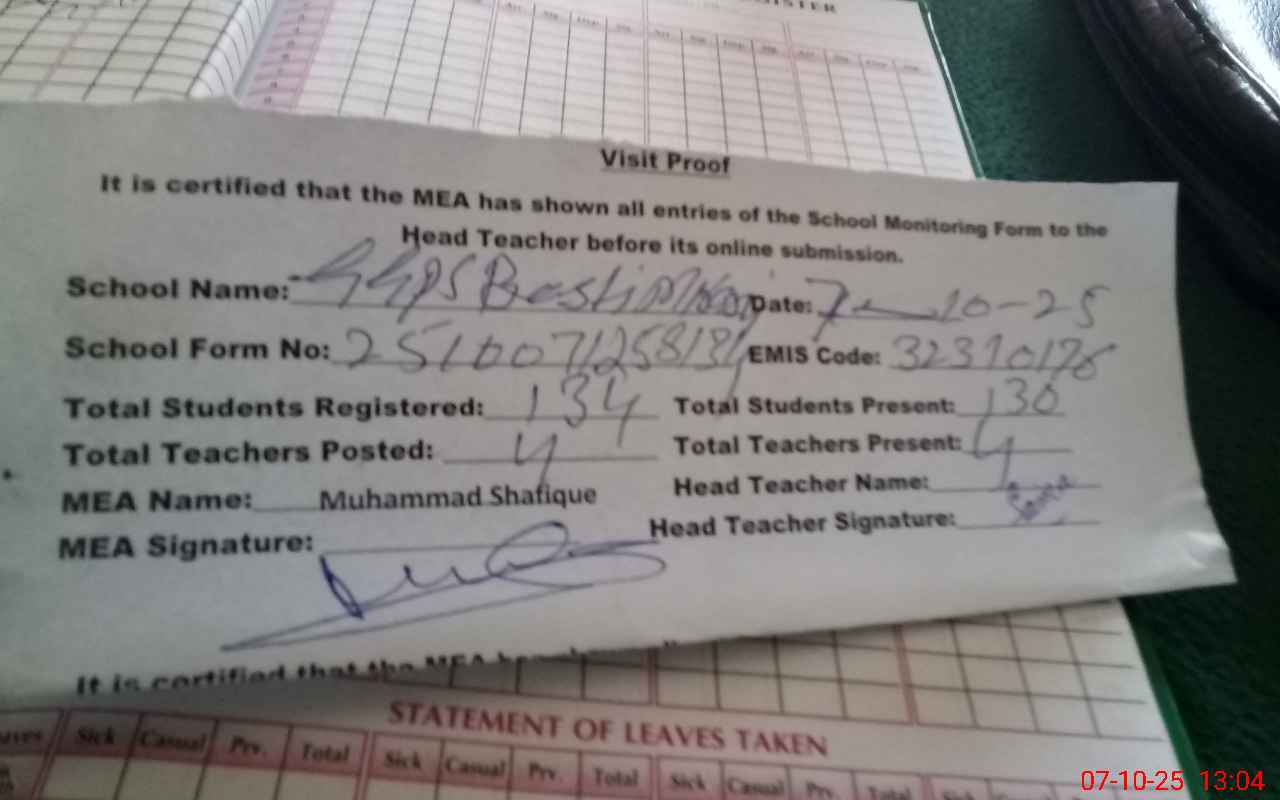 ISTER
Visit Proof
It is certified that the MEA has shown all entries of the School Monitoring Form to the
Head Teacher before its online submission.
School Name: GGPS Basti Date: 7-10-25
School Form No: EMIS Code: 32310176
Total Students Registered: 134 Total Students Present: 130
Total Teachers Posted: 4 Total Teachers Present: 4
MEA Name: Muhammad Shafique Head Teacher Name:
MEA Signature: Head Teacher Signature:
It is certified that the MEA
STATEMENT OF LEAVES TAKEN
Sick Casual Prv. Total Sick Casual Prv. Total Sick Casual Prv. Total Sick
07-10-25 13:04